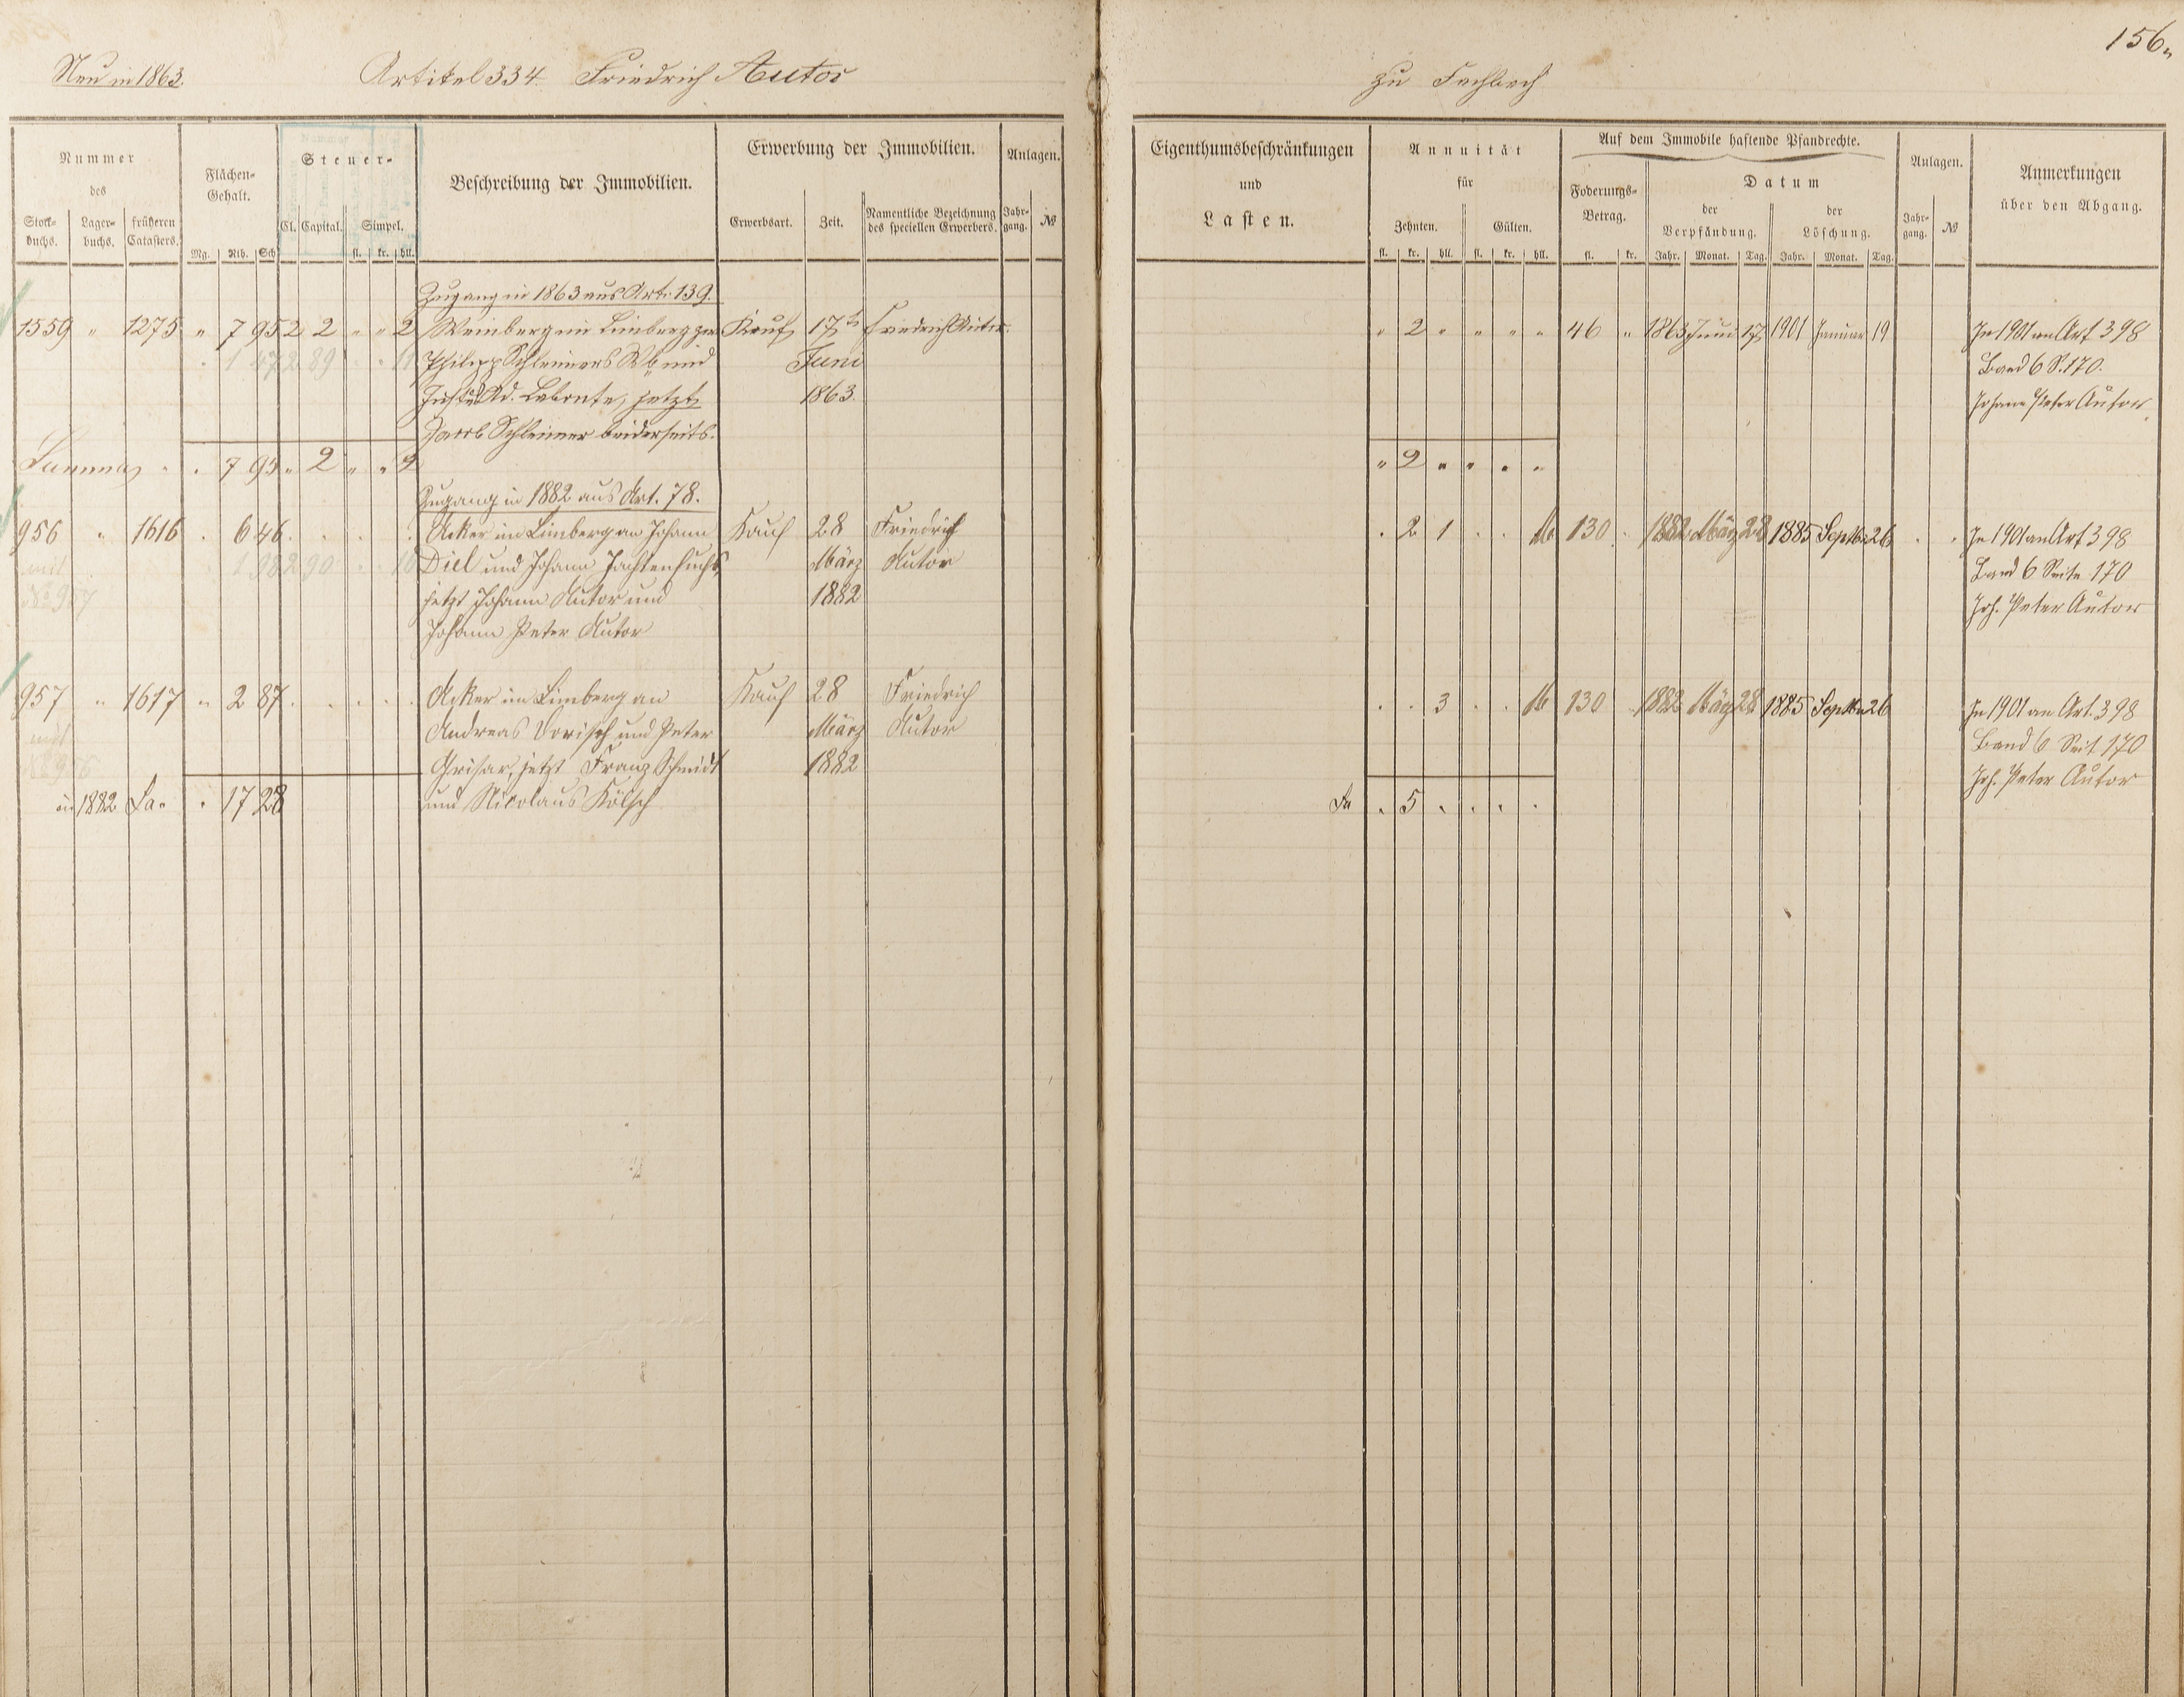 156.
Neu in 1863. Artikel 334. Friedrich Autor zu Fachbach
Nummer des
Stock-buchs. Lager-buchs. früheren Catasters.
Flächen-Gehalt.
Mg. Rth. Sch.
Steuer-
Cl. Capital. Simpel.
fl. kr. hll.
Beschreibung der Immobilien.
Erwerbung der Immobilien.
Erwerbsart. Zeit. Namentliche Bezeichnung des speciellen Erwerbers.
Anlagen.
Jahr-gang. №
Eigenthumsbeschränkungen
und
Lasten.
Annuität
für
Zehnten. Gülten.
fl. kr. hll. fl. kr. hll.
Auf dem Immobile haftende Pfandrechte.
Foderungs-Betrag.
fl. kr.
Datum
der Verpfändung. der Löschung.
Jahr. Monat. Tag. Jahr. Monat. Tag.
Anlagen.
Jahr-gang. №
Anmerkungen
über den Abgang.
Zugang in 1863 aus Art. 139.
1559 " 1275 " 7 95 2 2 " " 2 Weinberg im Limberg zw. Kauf 17 Friedrich Autor. " 2 " " " " 46 " 1863 Juni 17 1901 Januar 19 In 1901 an Art 398
1 47 2 89 11 Philipp Schleimers Wb und Juni Band 6 S. 170.
Ad. Labonte, jetzt 1863. Johann Peter Autor.
Jacob Schleimer beiderseits.
Summa . . 7 95 " 2 " " 2 " 2 " " " "
Zugang in 1882 aus Art. 78.
956 " 1616 . 6 46 . . . . . Acker im Limberg an Johann Kauf 28 Friedrich . 2 1 . . M 130 . 1882 März 28 1885 Septbr 26 . . In 1901 an Art 398
mit 1 98 2 90 Diel und Johann Jachtenfuchs, März Autor Band 6 Seite 170
No 957 jetzt Johann Autor und 1882 Joh. Peter Autor
Johann Peter Autor
957 " 1617 " 2 87 . . . . . Acker im Limberg an Kauf 28 Friedrich . . 3 . . M 130 1882 März 28 1885 Septbr 26 In 1901 an Art. 398
mit Andreas Dorisch und Peter März Autor Band 6 Seit 170
No 956 Grisar, jetzt Franz Schmidt 1882 Joh. Peter Autor
in 1882 Sa. . 17 28 und Nicolaus Kölsch Sa . 5 . . . .